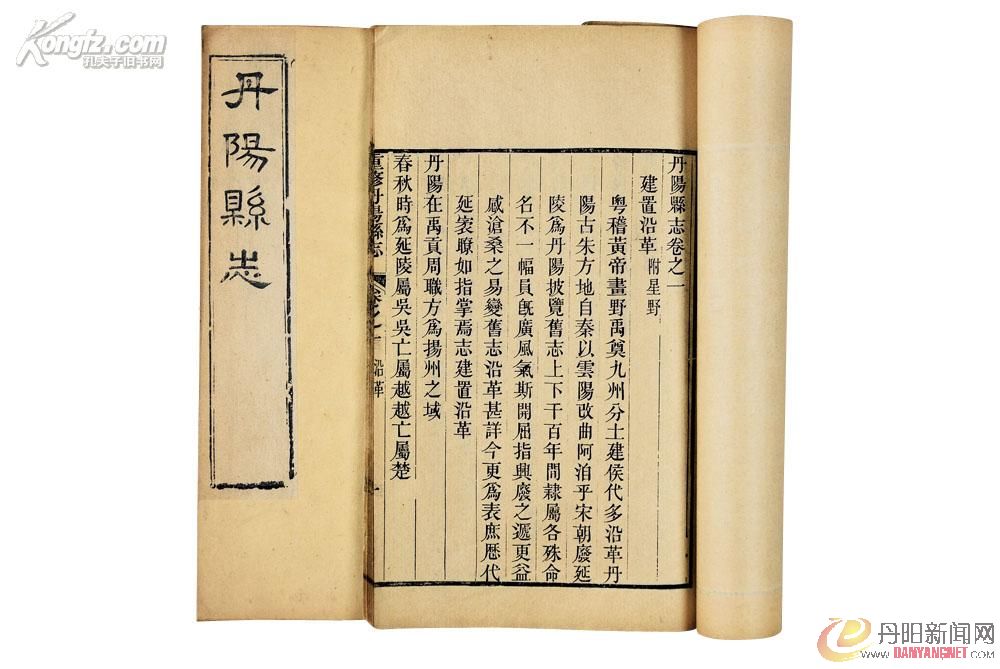 Kongfz.com
孔夫子旧书网
丹陽縣志
丹陽縣志卷之一
建置沿革 附星野
粤稽黃帝畫野禹奠九州分土建侯代多沿革丹
陽古朱方地自秦以雲陽改曲阿洎乎宋朝廢延
陵爲丹陽披覽舊志上下千百年間隸屬各殊命
名不一幅員旣廣風氣斯開屈指興廢之遞更益
感滄桑之易變舊志沿革甚詳今更爲表庶歷代
延袤瞭如指掌焉志建置沿革
丹陽在禹貢周職方爲揚州之域
春秋時爲延陵屬吳吳亡屬越越亡屬楚
重修丹陽縣志
卷之一
沿革
一
丹阳新闻网
DANYANGNET.COM